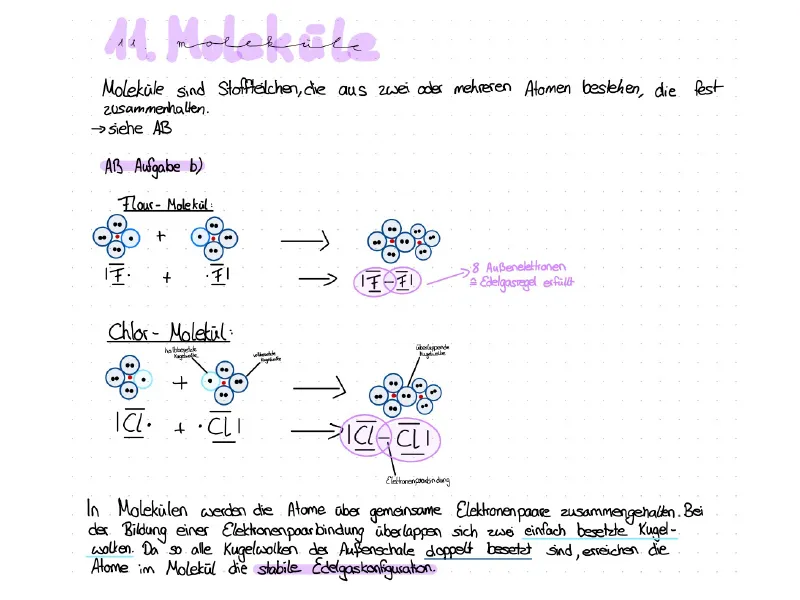 11. Moleküle
11. moleküle
Moleküle sind Stoffteilchen, die aus zwei oder mehreren Atomen bestehen, die fest
zusammenhalten.
→ siehe AB
AB Aufgabe b)
Flour-Molekül:
+ →
|F· + ·F| → |F–F|
8 Außenelektronen
≙ Edelgasregel erfüllt
Chlor-Molekül:
halbbesetzte
Kugelwolke
vollbesetzte
Kugelwolke
überlappende
Kugelwolke
+ →
|Cl· + ·Cl| → |Cl–Cl|
Elektronenpaarbindung
In Molekülen werden die Atome über gemeinsame Elektronenpaare zusammengehalten. Bei
der Bildung einer Elektronenpaarbindung überlappen sich zwei einfach besetzte Kugel-
wolken. Da so alle Kugelwolken der Außenschale doppelt besetzt sind, erreichen die
Atome im Molekül die stabile Edelgaskonfiguration.